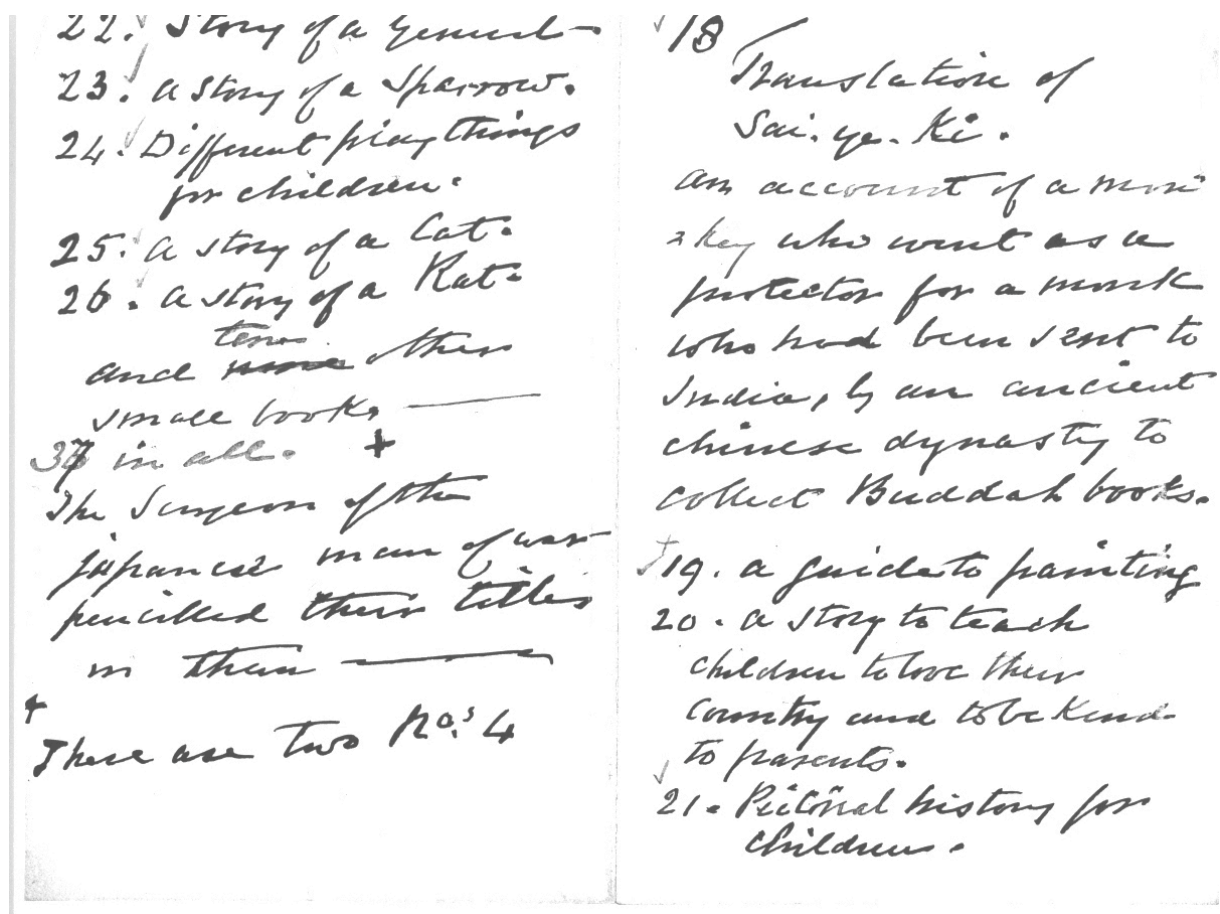 22. Story of a General
23. a story of a Sparrow.
24. Different play things
for children.
25. a story of a Cat.
26. a story of a Rat.
ten
and other
small books
37 in all. +
The Surgeon of the
japanese man of war
pencilled their titles
in them
+
There are two No.s 4
18
Translation of
Sai-ye-Ki.
an account of a mon
key who went as a
protector for a monk
who had been sent to
India, by an ancient
chinese dynasty to
collect Buddah books.
+
19. a guide to painting
20. a story to teach
children to love their
country and to be kind
to parents.
21. Pictorial history for
children.